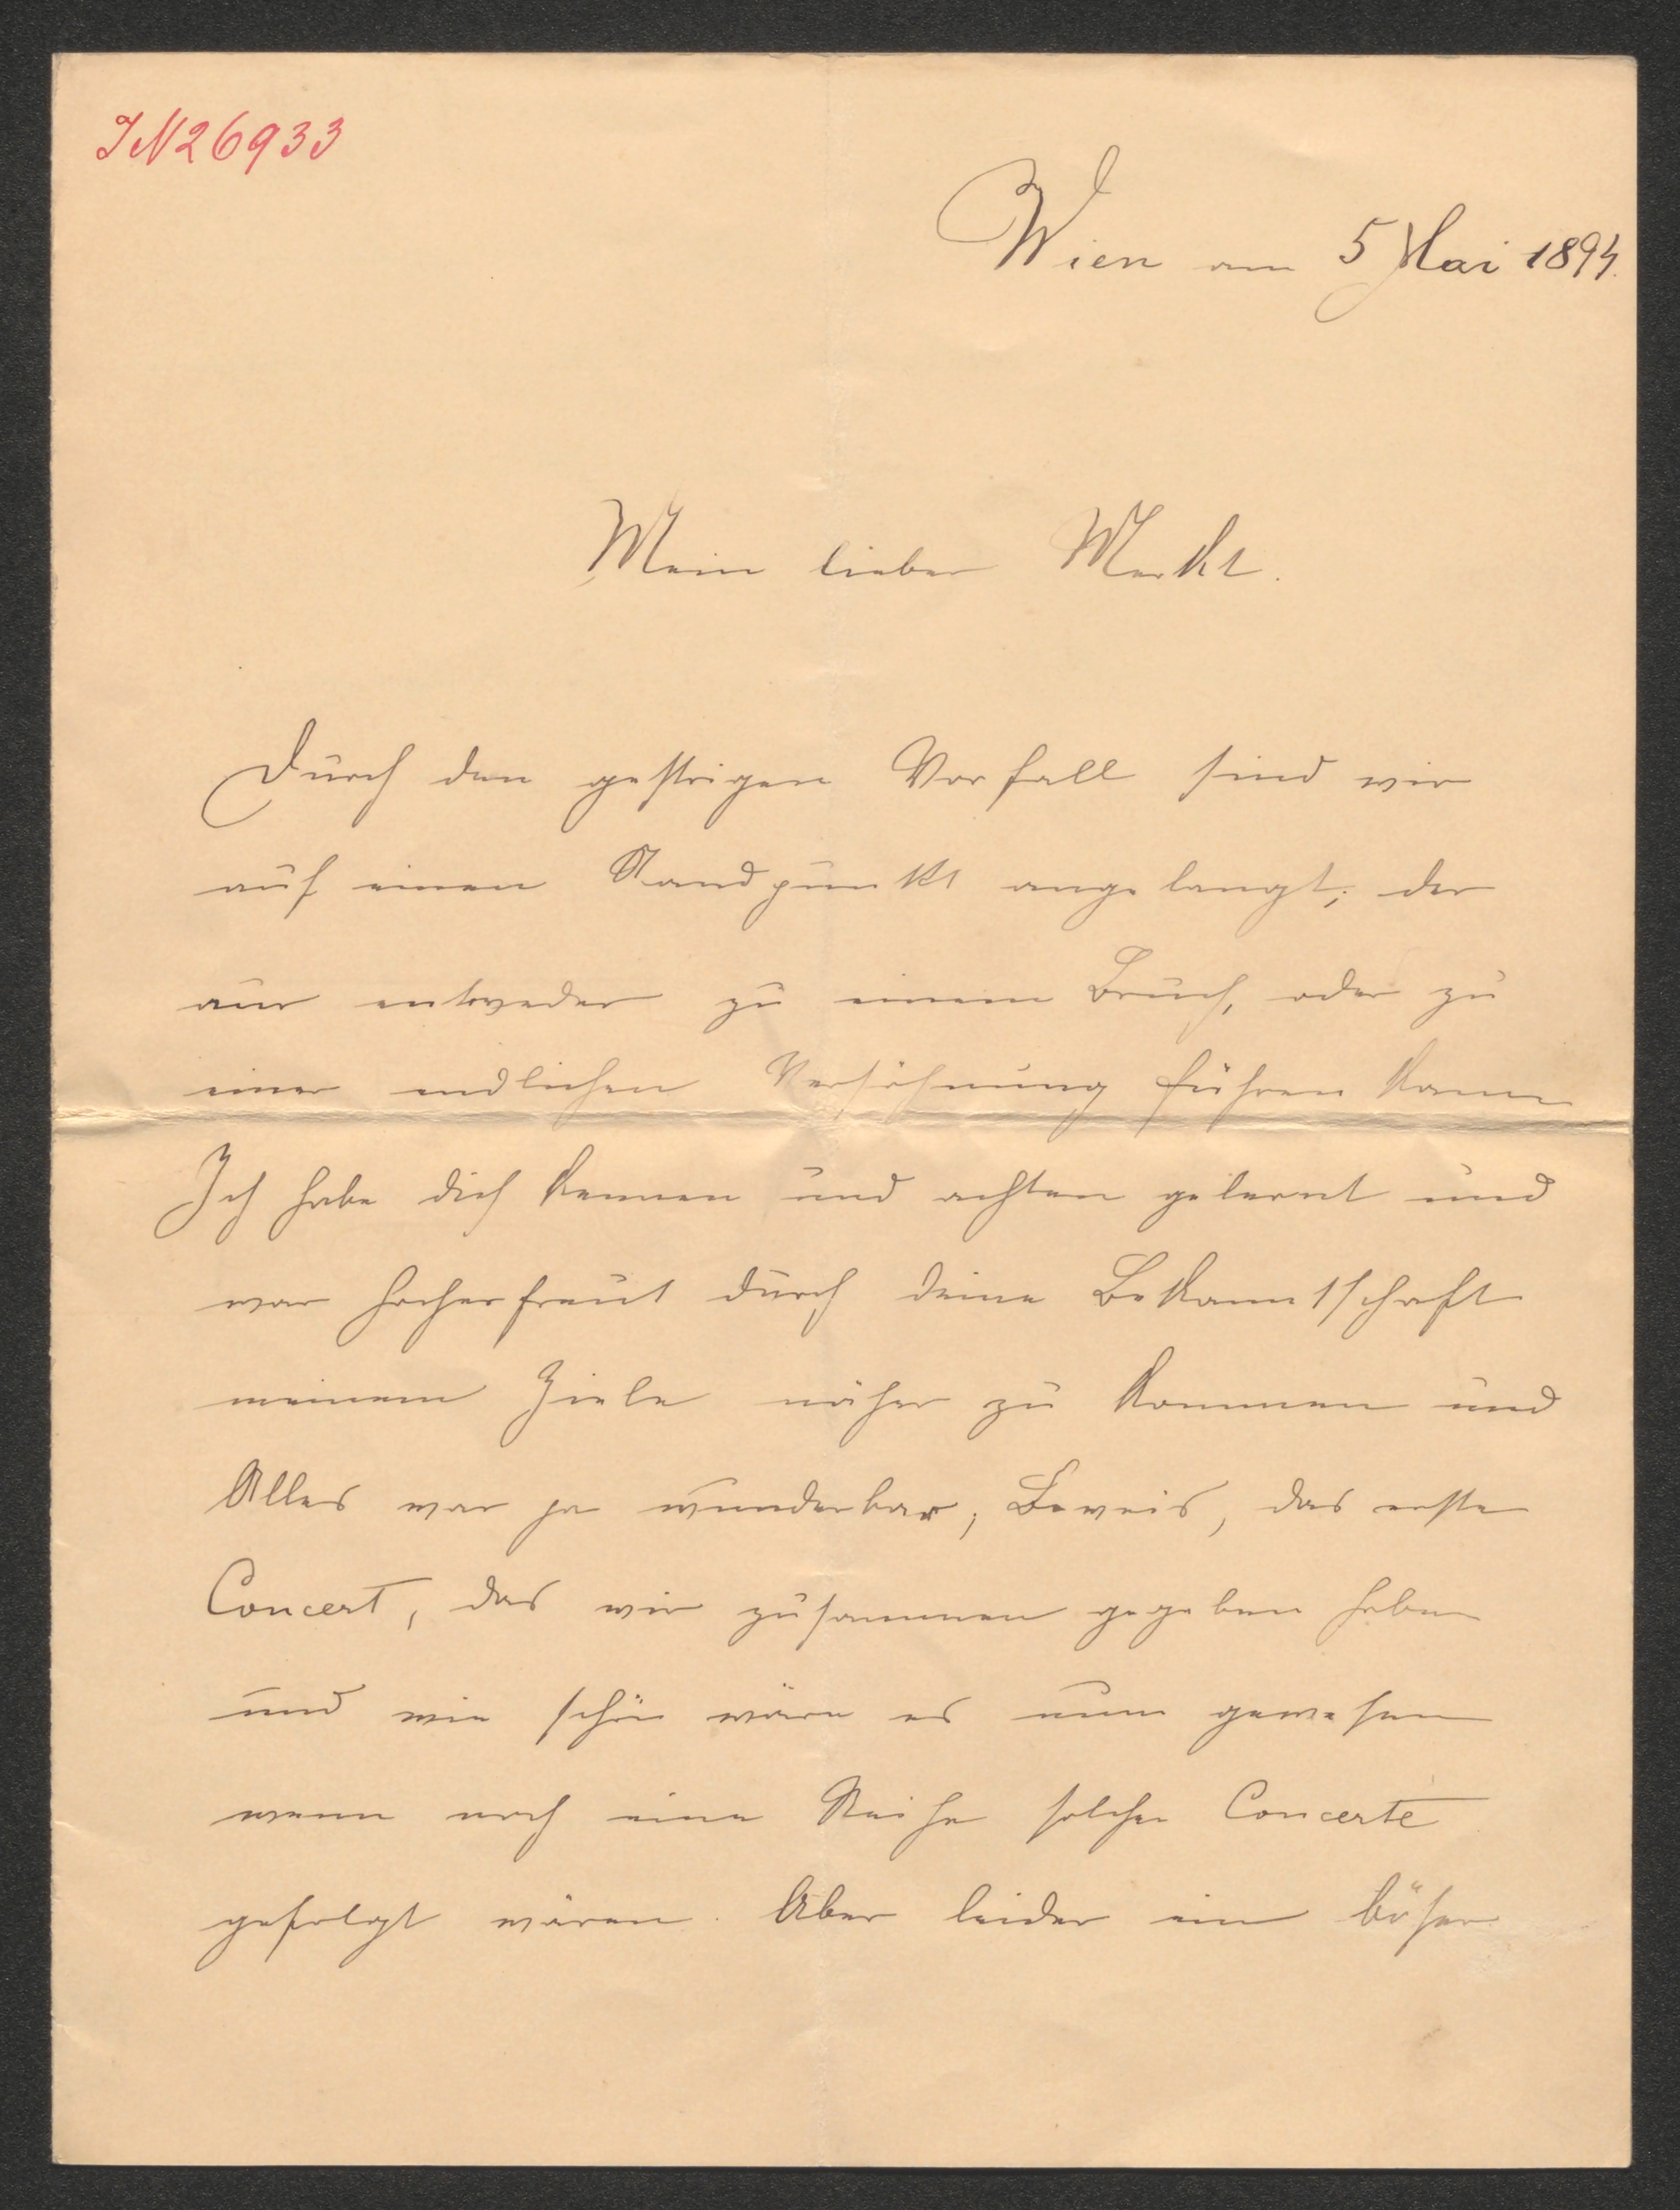 IN 26933
Wien am 5 Mai 1894.
Mein lieber Merkt.
Durch den gestrigen Vorfall sind wir
auf einen Standpunkt angelangt; der
nur entweder zu einem Bruch, oder zu
einer endlichen Versöhnung führen kann
Ich habe dich kennen und achten gelernt und
war hocherfreut durch deine Bekanntschaft
meinem Ziele näher zu kommen und
Alles war ja wunderbar; Beweis, das erste
Concert, das wir zusammen gegeben haben
und wie schön wäre es nun gewesen
wenn noch eine Reihe solcher Concerte
gefolgt wären. Aber leider ein böser